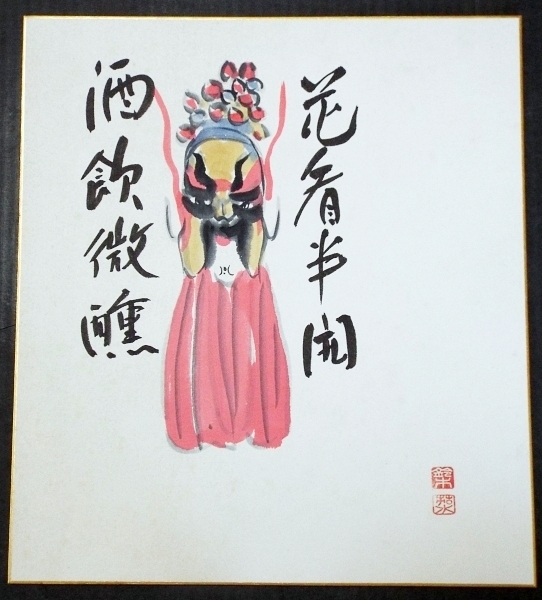 花看半開
酒飲微醺